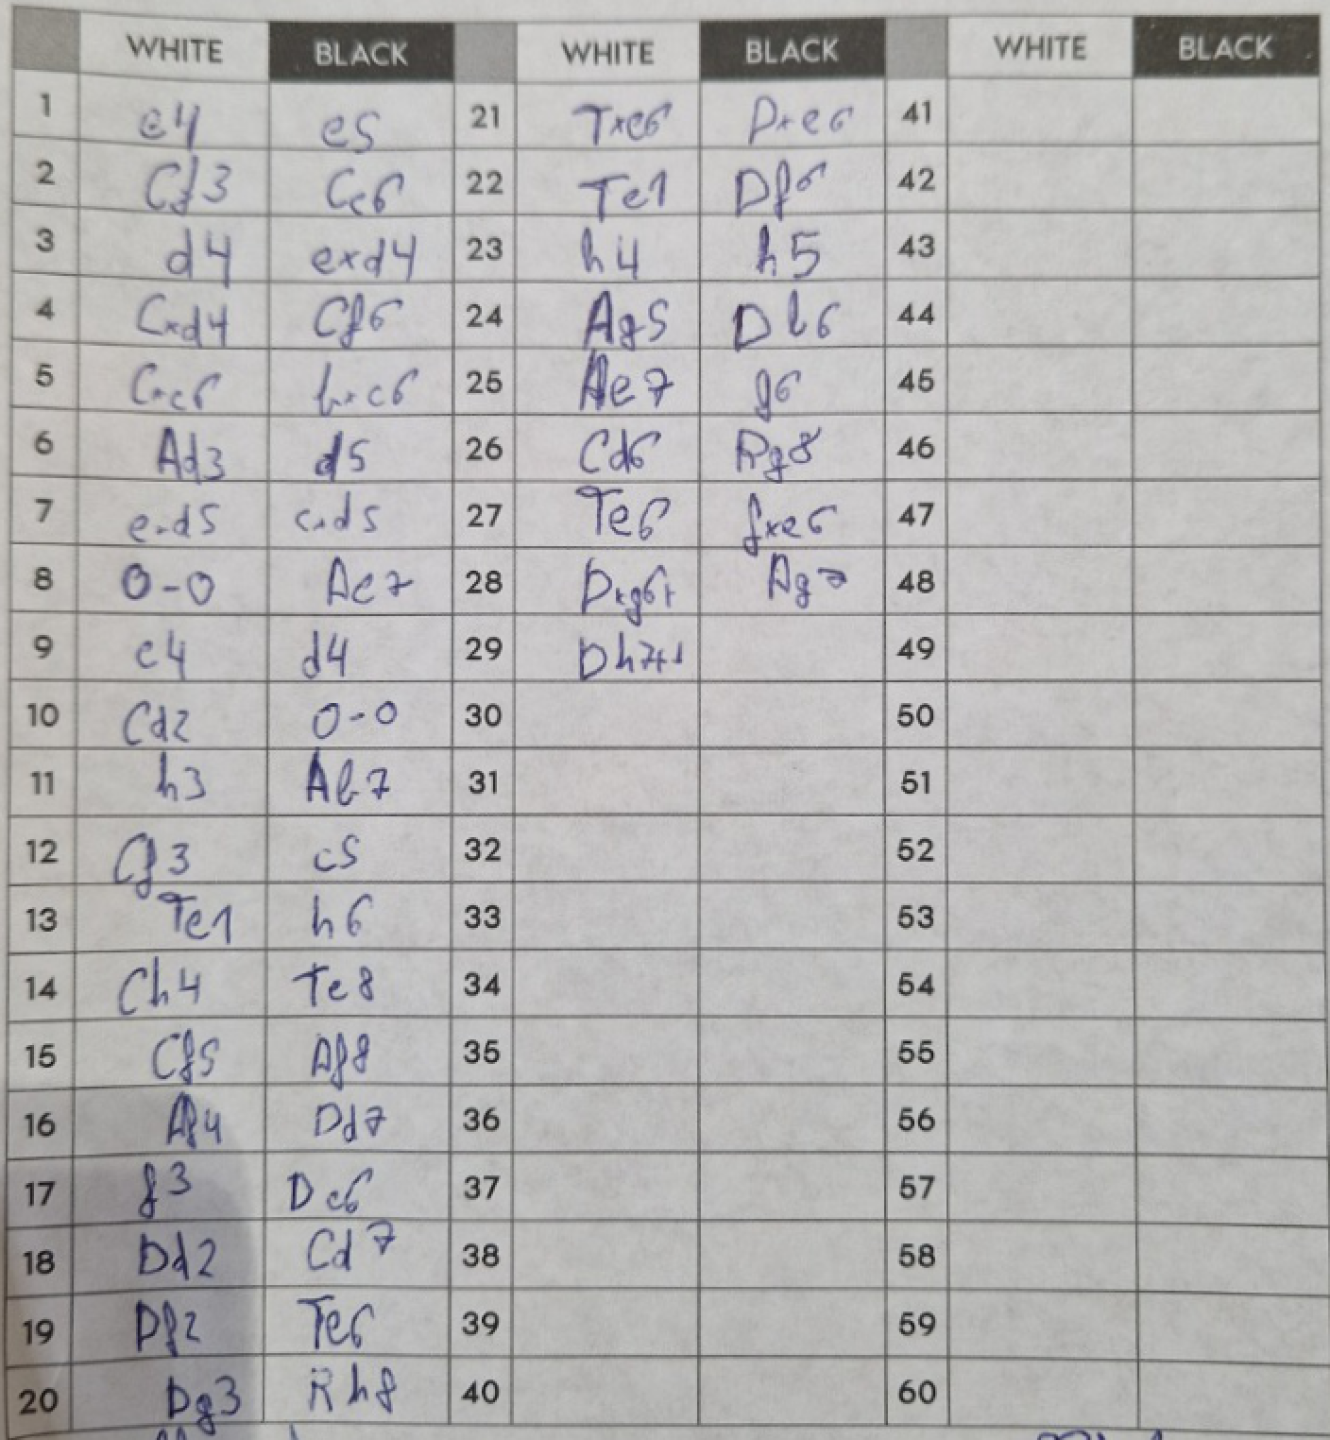 WHITE BLACK WHITE BLACK WHITE BLACK
1 e4 e5 21 Txe6 Dxe6 41
2 Cf3 Cc6 22 Te1 Df6 42
3 d4 exd4 23 h4 h5 43
4 Cxd4 Cf6 24 Ag5 Db6 44
5 Cxc6 bxc6 25 Ae7 g6 45
6 Ad3 d5 26 Cd6 Rg8 46
7 exd5 cxd5 27 Te6 fxe6 47
8 0-0 Ae7 28 Dxg6+ Ag7 48
9 c4 d4 29 Dh7+ 49
10 Cd2 0-0 30 50
11 h3 Ab7 31 51
12 Cf3 c5 32 52
13 Te1 h6 33 53
14 Ch4 Te8 34 54
15 Cf5 Af8 35 55
16 Af4 Dd7 36 56
17 f3 Dc6 37 57
18 Dd2 Cd7 38 58
19 Df2 Te6 39 59
20 Dg3 Rh8 40 60